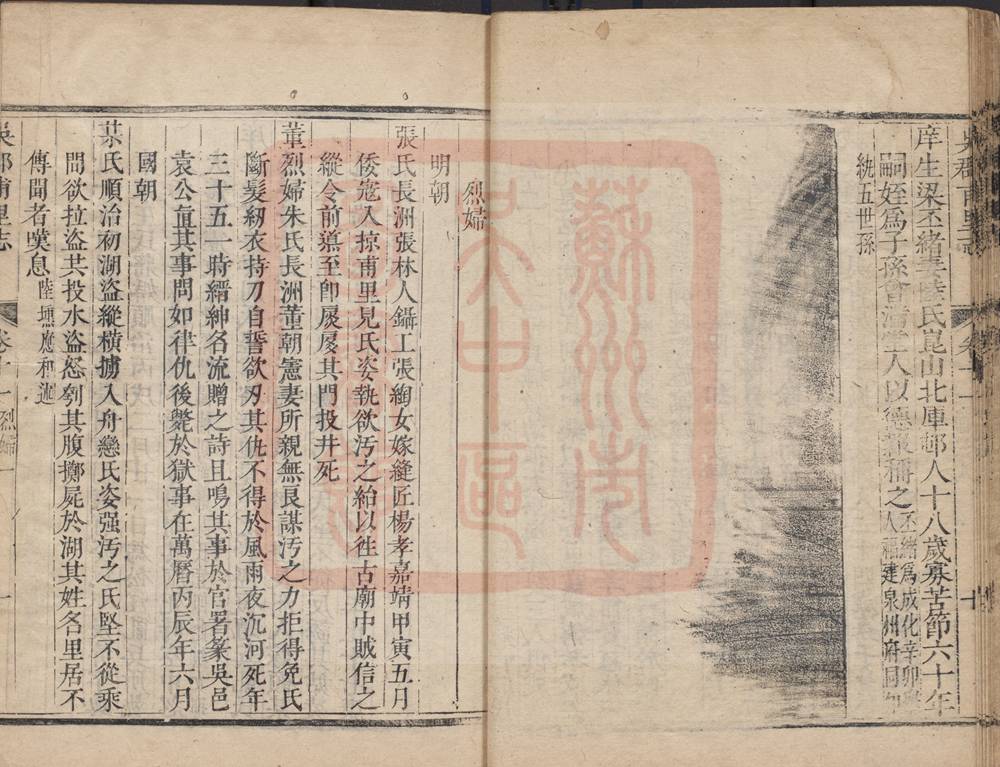 吳郡甫里志
卷十一
十
庠生梁丕緒妻陸氏崑山北庫邨人十八歲寡苦節六十年
嗣姪爲子孫會清堂人以德報稱之丕緒爲成化辛卯
人福建泉州府同知
紈五世孫
烈婦
明朝
張氏長洲張林人鑷工張綯女嫁縫匠楊孝嘉靖甲寅五月
倭寇入掠甫里見氏姿執欲汚之紿以徃古廟中賊信之
縱令前導至卽屐屐其門投井死
董烈婦朱氏長洲董朝憲妻所親無良謀汚之力拒得免氏
斷髮紉衣持刀自誓欲刃其仇不得於風雨夜沉河死年
三十五一時縉紳名流贈之詩且鳴其事於官署篆吳邑
袁公直其事問如律仇後斃於獄事在萬曆丙辰年六月
國朝
某氏順治初湖盜縱橫擄入舟戀氏姿强汚之氏堅不從乘
間欲拉盜共投水盜怒刳其腹擲屍於湖其姓名里居不
傳聞者嘆息陸燻應和迹
吳郡甫里志
卷十一烈婦
一
蘇州市吳中區